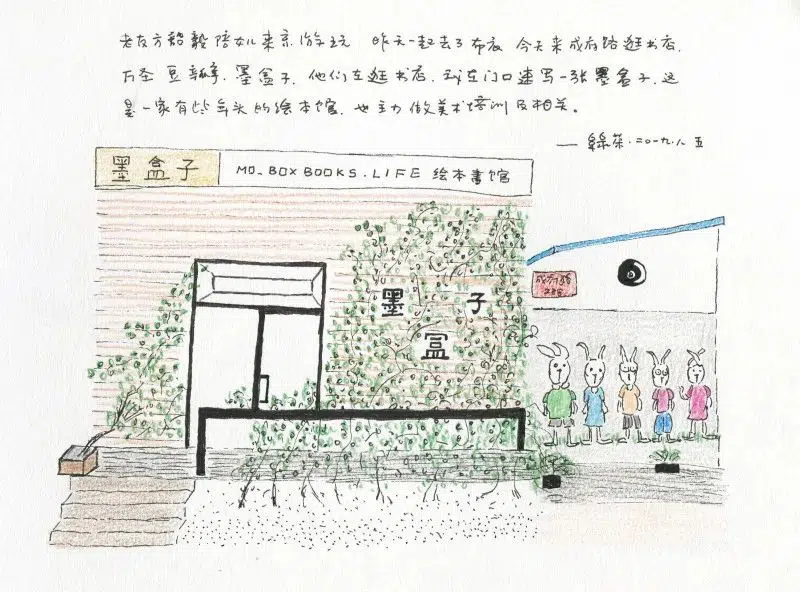 老友方韶毅陪女儿来京游玩 昨天一起去了布衣 今天来成府路逛书店.
万圣 豆瓣 墨盒子. 他们在逛书店. 我在门口速写一张墨盒子. 这
是一家有些年头的绘本馆. 也主力做美术培训及相关。
— 绿茶.二〇一九.八.五
墨盒子 MO_BOX BOOKS.LIFE 绘本書馆
成府路
墨 子
盒